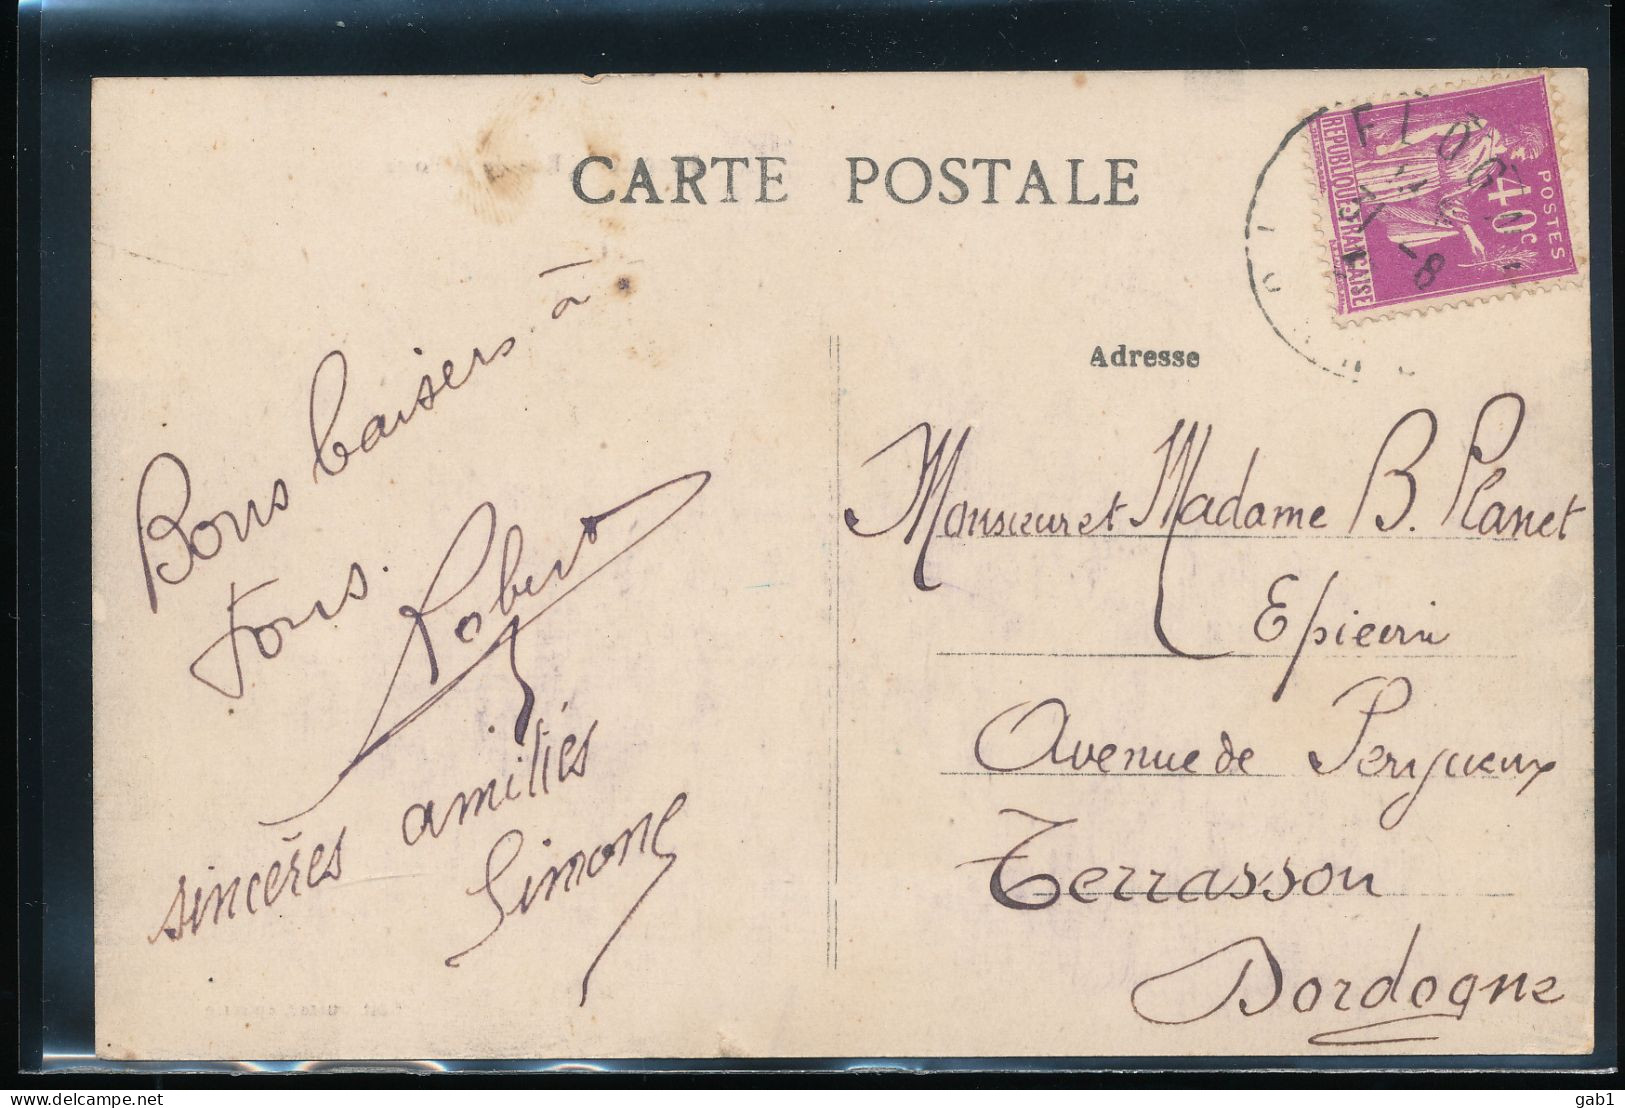 CARTE POSTALE
POSTES
40c
REPUBLIQUE FRANCAISE
FLOGNY
-8
Bons baisers à
tous.
Robert
sincères amitiés
Simone
Adresse
Monsieur et Madame B. Planet
Epicerie
Avenue de Perigueux
Terrasson
Dordogne
www.delcampe.net
gab1